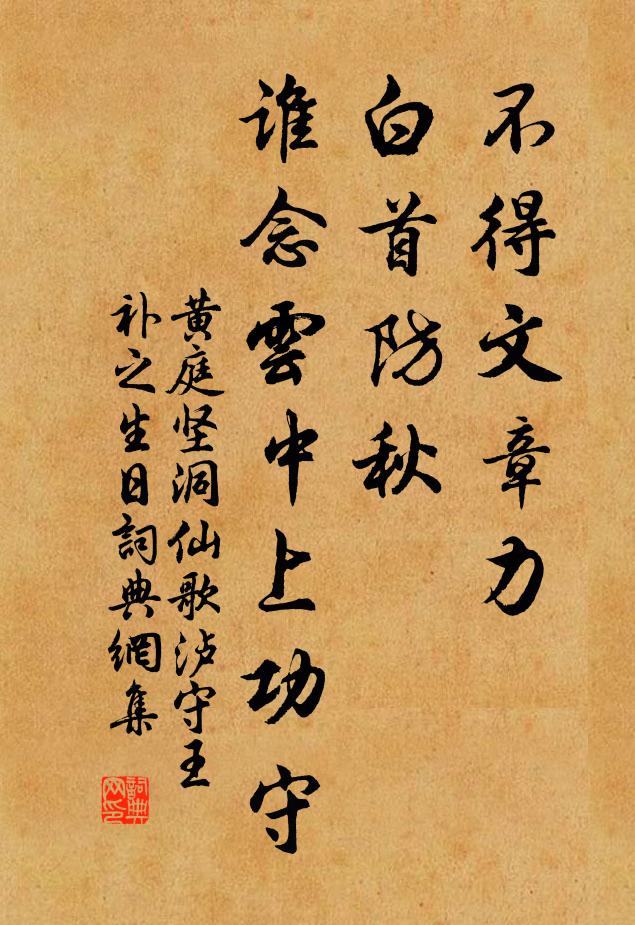 不得文章力
白首防秋
谁念雲中上功守
黄庭坚洞仙歌泸守王
补之生日詞典網集
詞典网印